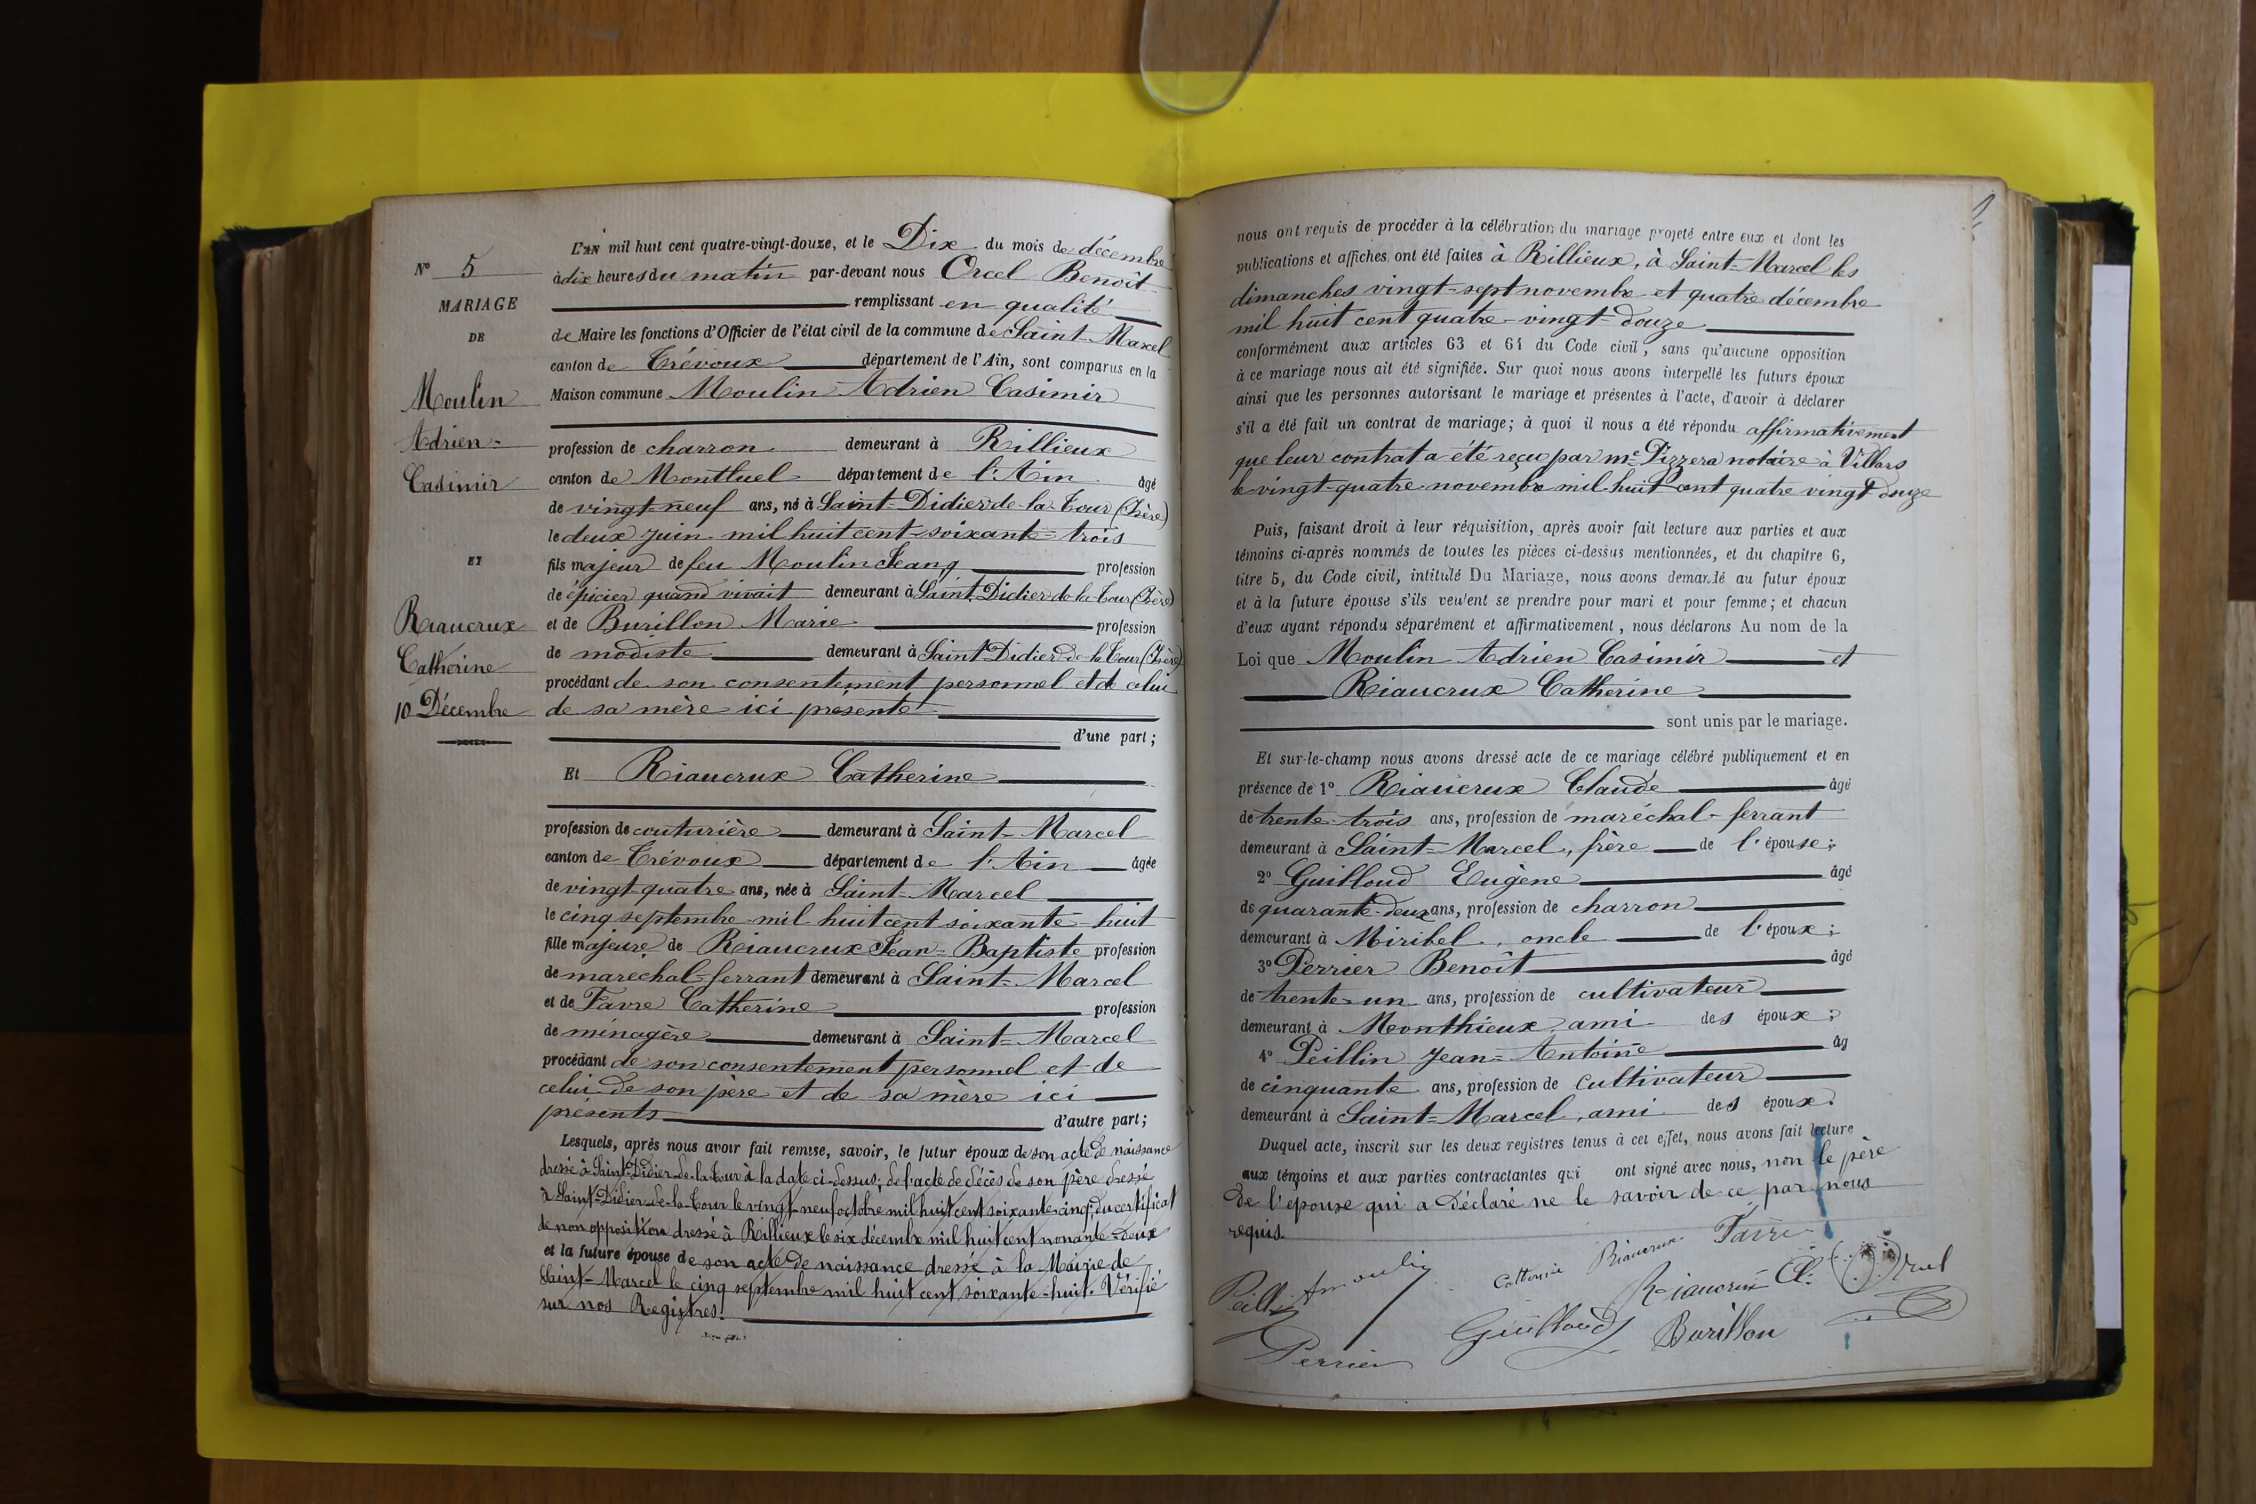 N° 5
MARIAGE
DE
Moulin
Adrien-
Casimir
ET
Riaucrux
Catherine
10 Décembre
L'AN mil huit cent quatre-vingt-douze, et le Dix du mois de décembre
à dix heures du matin par-devant nous Orcel Benoît
remplissant en qualité
de Maire les fonctions d'Officier de l'état civil de la commune de Saint-Marcel
canton de Trévoux département de l'Ain, sont comparus en la
Maison commune Moulin Adrien Casimir
profession de charron demeurant à Rillieux
canton de Montluel département de l'Ain âgé
de vingt-neuf ans, né à Saint-Didier de-la-Tour (Isère)
le deux juin mil huit cent-soixante-trois
fils majeur de feu Moulin Jean profession
de épicier quand vivait demeurant à Saint Didier de la Tour (Isère)
et de Burillon Marie profession
de modiste demeurant à Saint Didier de la Tour (Isère)
procédant de son consentement personnel et de celui
de sa mère ici présente
d'une part;
Et Riaucrux Catherine
profession de couturière demeurant à Saint-Marcel
canton de Trévoux département de l'Ain âgée
de vingt-quatre ans, née à Saint-Marcel
le cinq septembre mil huit cent soixante-huit
fille majeure de Riaucrux Jean-Baptiste profession
de maréchal-ferrant demeurant à Saint-Marcel
et de Favre Catherine profession
de ménagère demeurant à Saint-Marcel
procédant de son consentement personnel et de
celui de son père et de sa mère ici
présents d'autre part;
Lesquels, après nous avoir fait remise, savoir, le futur époux de son acte de naissance
dressé à Saint-Didier-de-la-Tour à la date ci-dessus, de l'acte de décès de son père dressé
à Saint-Didier-de-la-Tour le vingt-neuf octobre mil huit cent soixante-cinq, du certificat
de non opposition dressé à Rillieux le six décembre mil huit cent nonante-deux
et la future épouse de son acte de naissance dressé à la Mairie de
Saint-Marcel le cinq septembre mil huit cent soixante-huit. Vérifié
sur nos Registres.
nous ont requis de procéder à la célébration du mariage projeté entre eux et dont les
publications et affiches ont été faites à Rillieux, à Saint-Marcel les
dimanches vingt-sept novembre et quatre décembre
mil huit cent quatre-vingt-douze
conformément aux articles 63 et 64 du Code civil, sans qu'aucune opposition
à ce mariage nous ait été signifiée. Sur quoi nous avons interpellé les futurs époux
ainsi que les personnes autorisant le mariage et présentes à l'acte, d'avoir à déclarer
s'il a été fait un contrat de mariage; à quoi il nous a été répondu affirmativement
que leur contrat a été reçu par Me Pizzera notaire à Villars
le vingt-quatre novembre mil huit cent quatre vingt douze
Puis, faisant droit à leur réquisition, après avoir fait lecture aux parties et aux
témoins ci-après nommés de toutes les pièces ci-dessus mentionnées, et du chapitre 6,
titre 5, du Code civil, intitulé Du Mariage, nous avons demandé au futur époux
et à la future épouse s'ils veulent se prendre pour mari et pour femme; et chacun
d'eux ayant répondu séparément et affirmativement, nous déclarons Au nom de la
Loi que Moulin Adrien Casimir et
Riaucrux Catherine
sont unis par le mariage.
Et sur-le-champ nous avons dressé acte de ce mariage célébré publiquement et en
présence de 1° Riaucrux Claude âgé
de trente-trois ans, profession de maréchal-ferrant
demeurant à Saint-Marcel, frère de l'épouse;
2° Guilloud Eugène âgé
de quarante-deux ans, profession de charron
demeurant à Miribel, oncle de l'époux;
3° Perrier Benoît âgé
de trente-un ans, profession de cultivateur
demeurant à Monthieux, ami des époux;
4° Peillin Jean-Antoine âg
de cinquante ans, profession de cultivateur
demeurant à Saint-Marcel, ami des époux.
Duquel acte, inscrit sur les deux registres tenus à cet effet, nous avons fait lecture
aux témoins et aux parties contractantes qui ont signé avec nous, non le père
de l'épouse qui a déclaré ne le savoir de ce par nous
requis.
Peillin Amoulin Catherine Riaucrux Favre
Riaucrux Cl. Orcel
Guilloud Burillon
Perrier